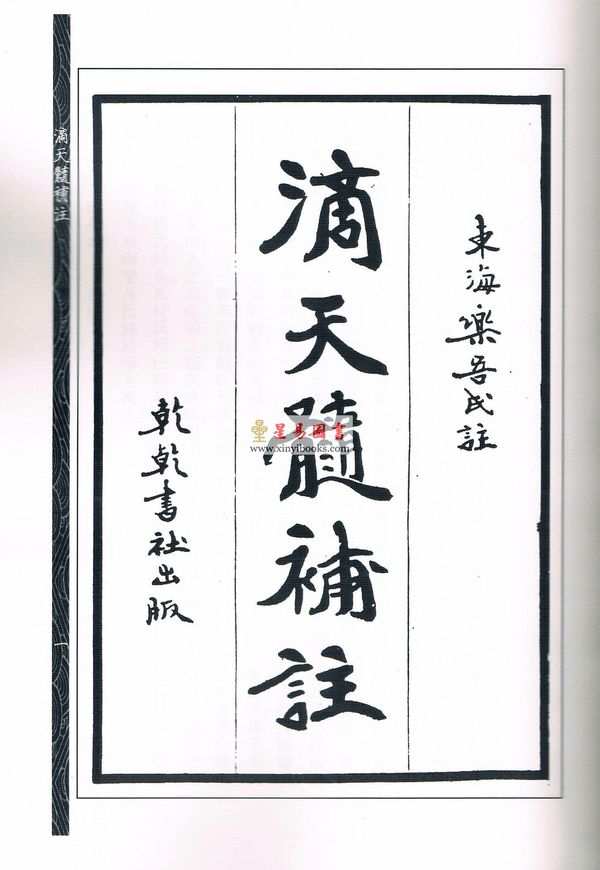 東海樂吾氏註
滴天髓補註
乾乾書社出版
滴天髓補註
一
星易圖書
www.xinyibooks.com